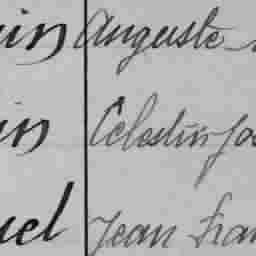 in Auguste
in Célestin Jos
uel Jean Fran